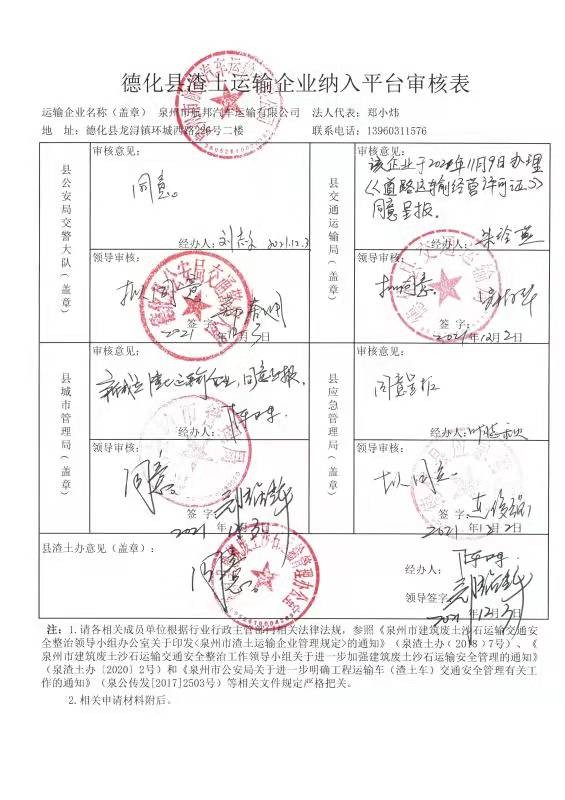 德化县渣土运输企业纳入平台审核表
运输企业名称（盖章） 泉州市航邦汽车运输有限公司 法人代表：郑小炜
地 址：德化县龙浔镇环城西路226号二楼 联系电话：13960311576
县公安局交警大队（盖章）
审核意见：
同意。
经办人： 2021.12.3
领导审核：
拟同意
签字：
2021年12月3日
县交通运输局（盖章）
审核意见：
该企业于2021年11月9日办理
《道路运输经营许可证》
同意呈报。
经办人：
领导审核：
拟同意。
签字：
2021年12月2日
县城市管理局（盖章）
审核意见：
新成立渣土运输企业，同意呈报。
经办人：
领导审核：
同意。
签字
2021年12月3日
县应急管理局（盖章）
审核意见：
同意呈报
经办人：
领导审核：
拟同意
签字：
2021年12月2日
县渣土办意见（盖章）：
同意
经办人：
领导签字
2021 12月3日
注：1.请各相关成员单位根据行业行政主管部门相关法律法规，参照《泉州市建筑废土沙石运输交通安
全整治领导小组办公室关于印发<泉州市渣土运输企业管理规定>的通知》（泉渣土办（2018）7号）、《
泉州市建筑废土沙石运输交通安全整治工作领导小组关于进一步加强建筑废土沙石运输安全管理的通知》
（泉渣土办〔2020〕2号）和《泉州市公安局关于进一步明确工程运输车（渣土车）交通安全管理有关工
作的通知》（泉公传发[2017]2503号）等相关文件规定严格把关。
2.相关申请材料附后。